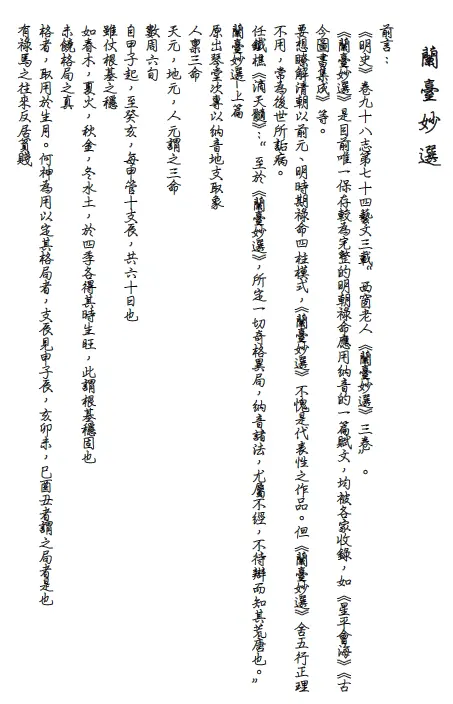 蘭臺妙選
前言：
《明史》卷九十八志第七十四藝文三載“西窗老人《蘭臺妙選》三卷”。
《蘭臺妙選》是目前唯一保存較為完整的明朝祿命應用納音的一篇賦文，均被各家收錄，如《星平會海》《古
今圖書集成》等。
要想瞭解清朝以前元、明時期祿命四柱模式，《蘭臺妙選》不愧是代表性之作品。但《蘭臺妙選》舍五行正理
不用，常為後世所詬病。
任鐵樵《滴天髓》：“至於《蘭臺妙選》，所定一切奇格異局，納音諸法，尤屬不經，不待辯而知其荒唐也。”
蘭臺妙選–上篇
原出琴堂次專以納音地支取象
人稟三命
天元，地元，人元謂之三命
數周六旬
自甲子起，至癸亥，每甲管十支辰，共六十日也
雖仗根基之穩
如春木，夏火，秋金，冬水土，於四季各得其時生旺，此謂根基穩固也
未饒格局之真
格者，取用於生月。何神為用以定其格局者，支辰見申子辰，亥卯未，巳酉丑者謂之局者是也
有祿馬之往來反居貧賤